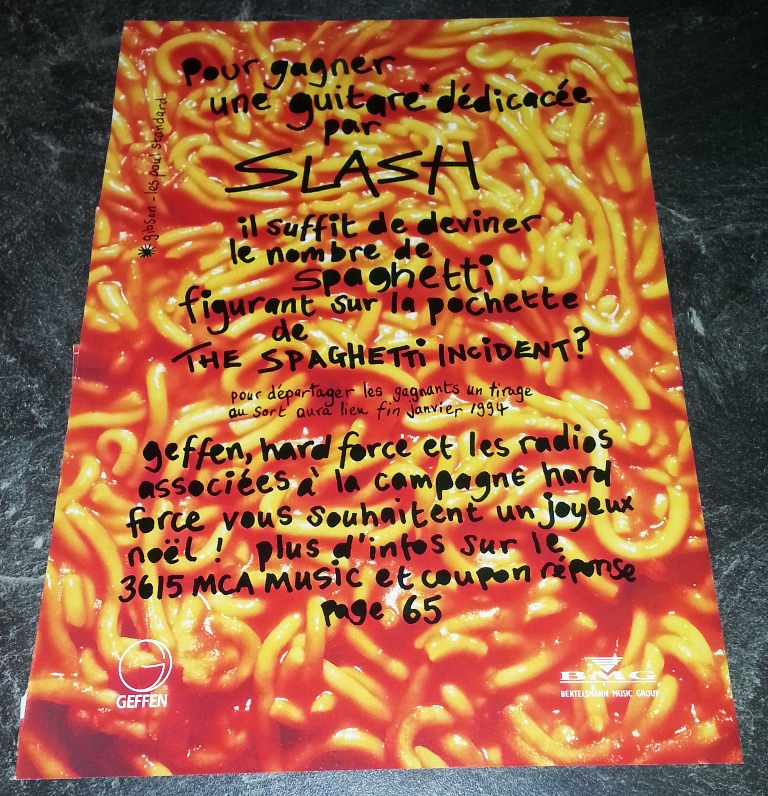 pour gagner
une guitare* dédicacée
par
SLASH
* gibson - les paul standard
il suffit de deviner
le nombre de
spaghetti
figurant sur la pochette
de
THE SPAGHETTi INCiDENT?
pour départager les gagnants un tirage
au sort aura lieu fin janvier 1994
geffen, hard force et les radios
associées à la campagne hard
force vous souhaitent un joyeux
noël ! plus d'infos sur le
3615 MCA MUSIC et coupon réponse
page 65
GEFFEN
BMG
BERTELSMANN MUSIC GROUP